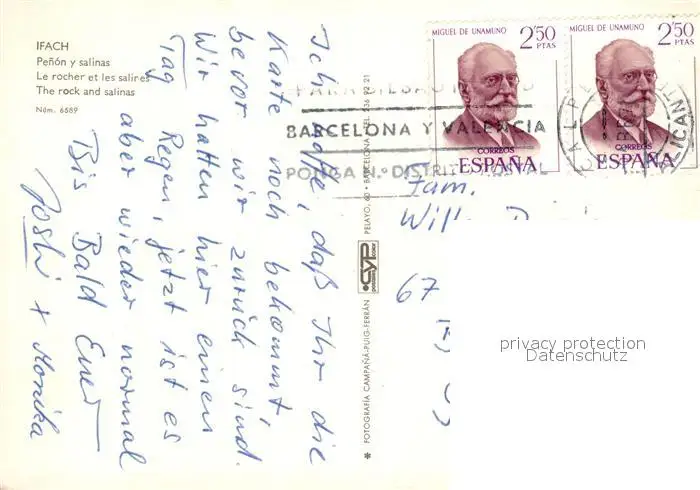 IFACH
Peñón y salinas
Le rocher et les salines
The rock and salinas
Núm. 6589
Ich hoffe, daß Ihr die
Karte noch bekommt,
bevor wir zurück sind.
Wir hatten hier einen
Tag Regen, jetzt ist es
aber wieder normal
Bis Bald Euer
Joshi + Monika
* FOTOGRAFÍA CAMPAÑÁ-PUIG-FERRÁN
CYP
PELAYO, 60 • BARCELONA • TEL. 236 92 21
MIGUEL DE UNAMUNO
2'50
PTAS
CORREOS
ESPAÑA
MIGUEL DE UNAMUNO
2'50
PTAS
CORREOS
ESPAÑA
PARA BILBAO
BARCELONA Y VALENCIA
PONGA N.º DISTRITO POSTAL
ALICANTE
Fam.
67
privacy protection
Datenschutz